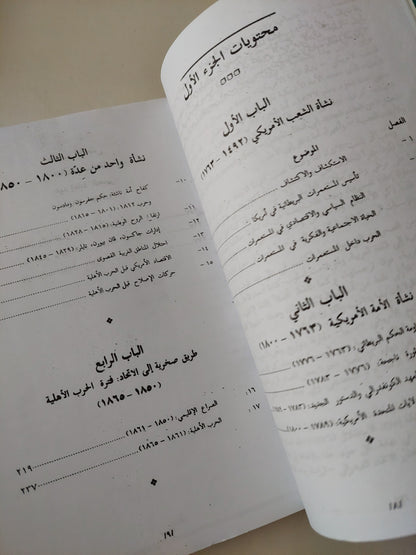 محتويات الجزء الأول
الباب الأول
نشأة الشعب الأمريكي (١٤٩٢ - ١٧٦٣)
الفصل
الموضوع
الاستكشاف والاكتشاف
تأسيس المستعمرات البريطانية في أمريكا
النظام السياسي والاقتصادي في المستعمرات
الحياة الاجتماعية والفكرية في المستعمرات
الحرب داخل المستعمرات
الباب الثاني
نشأة الأمة الأمريكية (١٧٦٣ - ١٨٠٠)
الحكم البريطاني: (١٧٦٣ - ١٧٧٦)
ناجحة: (١٧٧٦ - ١٧٨٣)
الكونفدرالي والدستور الجديد:
المتحدة الأمريكية: (١٧٨٩ - ١٨٠٠)
الباب الثالث
نشأة واحد من عدّة (١٨٠٠ - ٨٥٠
١٠ - كفاح أمة ناشئة: حكم جفرسون، وماديسون
وحرب ١٨١٢ (١٨٠١ - ١٨١٥)
١١ - ارتقاء الروح الوطنية: (١٨١٥ - ١٨٢٨)
١٢ - إدارات جاكسون، فان بيورن، تايلر: (١٨٢٩ - ١٨٤٥)
١٣ - احتلال المناطق الغربية القصوى
الاقتصاد الأمريكي قبل الحرب الأهلية
١٥ - حركات الإصلاح قبل الحرب الأهلية
الباب الرابع
طريق صخرية إلى الاتحاد: فترة الحرب الأهلية
(١٨٥٠ - ١٨٦٥)
١٦ - الصراع الإقليمي: (١٨٥٠ - ١٨٦١) ٢١٩
١٧ - الحرب الأهلية: (١٨٦١ - ١٨٦٥) ٢٣٧